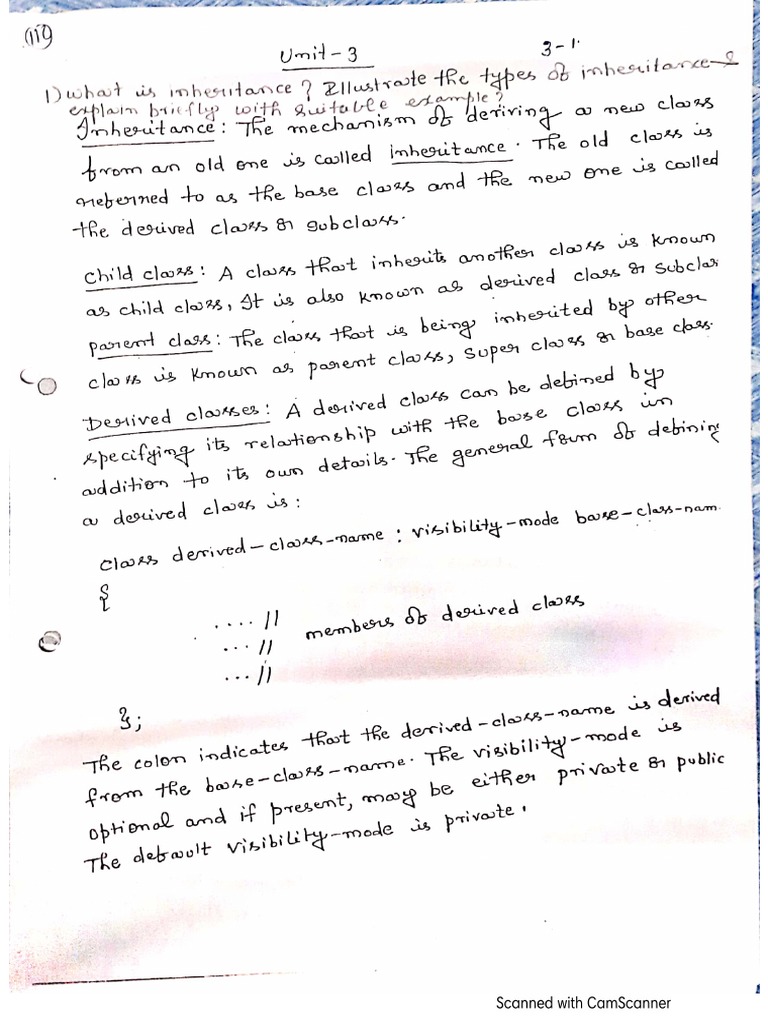 119
Unit-3
3-1.
1) What is inheritance? Illustrate the types of inheritance &
explain briefly with suitable example?
Inheritance: The mechanism of deriving a new class
from an old one is called inheritance. The old class is
referred to as the base class and the new one is called
the derived class or subclass.
Child class: A class that inherits another class is known
as child class, It is also known as derived class or subclas
parent class: The class that is being inherited by other
class is known as parent class, super class or base class.
Derived classes: A derived class can be defined by
specifying its relationship with the base class in
addition to its own details. The general form of defining
a derived class is:
Class derived-class-name : visibility-mode base-class-nam
{
.... //
members of derived class
... //
... //
};
The colon indicates that the derived-class-name is derived
from the base-class-name. The visibility-mode is
optional and if present, may be either private or public
The default visibility-mode is private.
Scanned with CamScanner